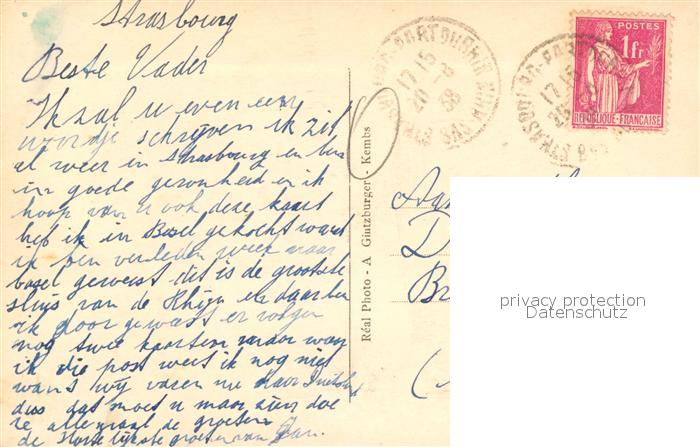 Strasbourg
Beste Vader
Ik zal u even een
woordje schrijven ik zit
al weer in Strasbourg en ben
in goede gezonheid en ik
hoop van u ook deze kaart
heb ik in Basel gekocht want
ik ben verleden week naar
basel geweest dit is de grootste
sluis van de Rhijn en daar ben
ik door geweest er volgen
nog twee kaarten verder van
ik die post weet ik nog niet
want wij varen nu door
dus dat moet u maar zien doe
ze allemaal de groeten
de groeten van Jan.
Réal Photo - A Gintzburger - Kembs
17 15
38
POSTES
1fr
REPUBLIQUE FRANÇAISE
17 15
privacy protection
Datenschutz